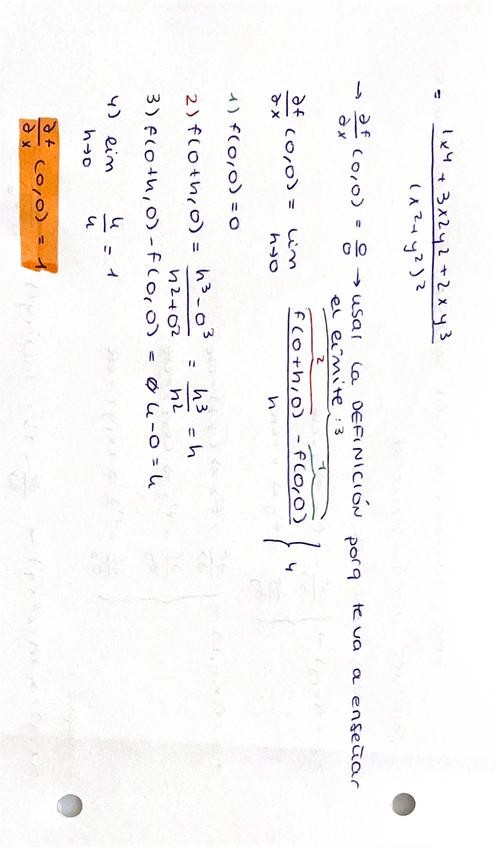 = 1x4 + 3x2y2 + 2xy3 / (x2+y2)2
→ ∂f/∂x (0,0) = 0/0 → usar la DEFINICIÓN porq te va a enseñar
el límite :3
∂f/∂x (0,0) = lim h→0 f(0+h,0) - f(0,0) / h } 4
2 1
1) f(0,0) = 0
2) f(0+h,0) = h³-0³ / h²+0² = h³/h² = h
3) f(0+h,0) - f(0,0) = h - 0 = h
4) lim h→0 h/h = 1
∂f/∂x (0,0) = 1